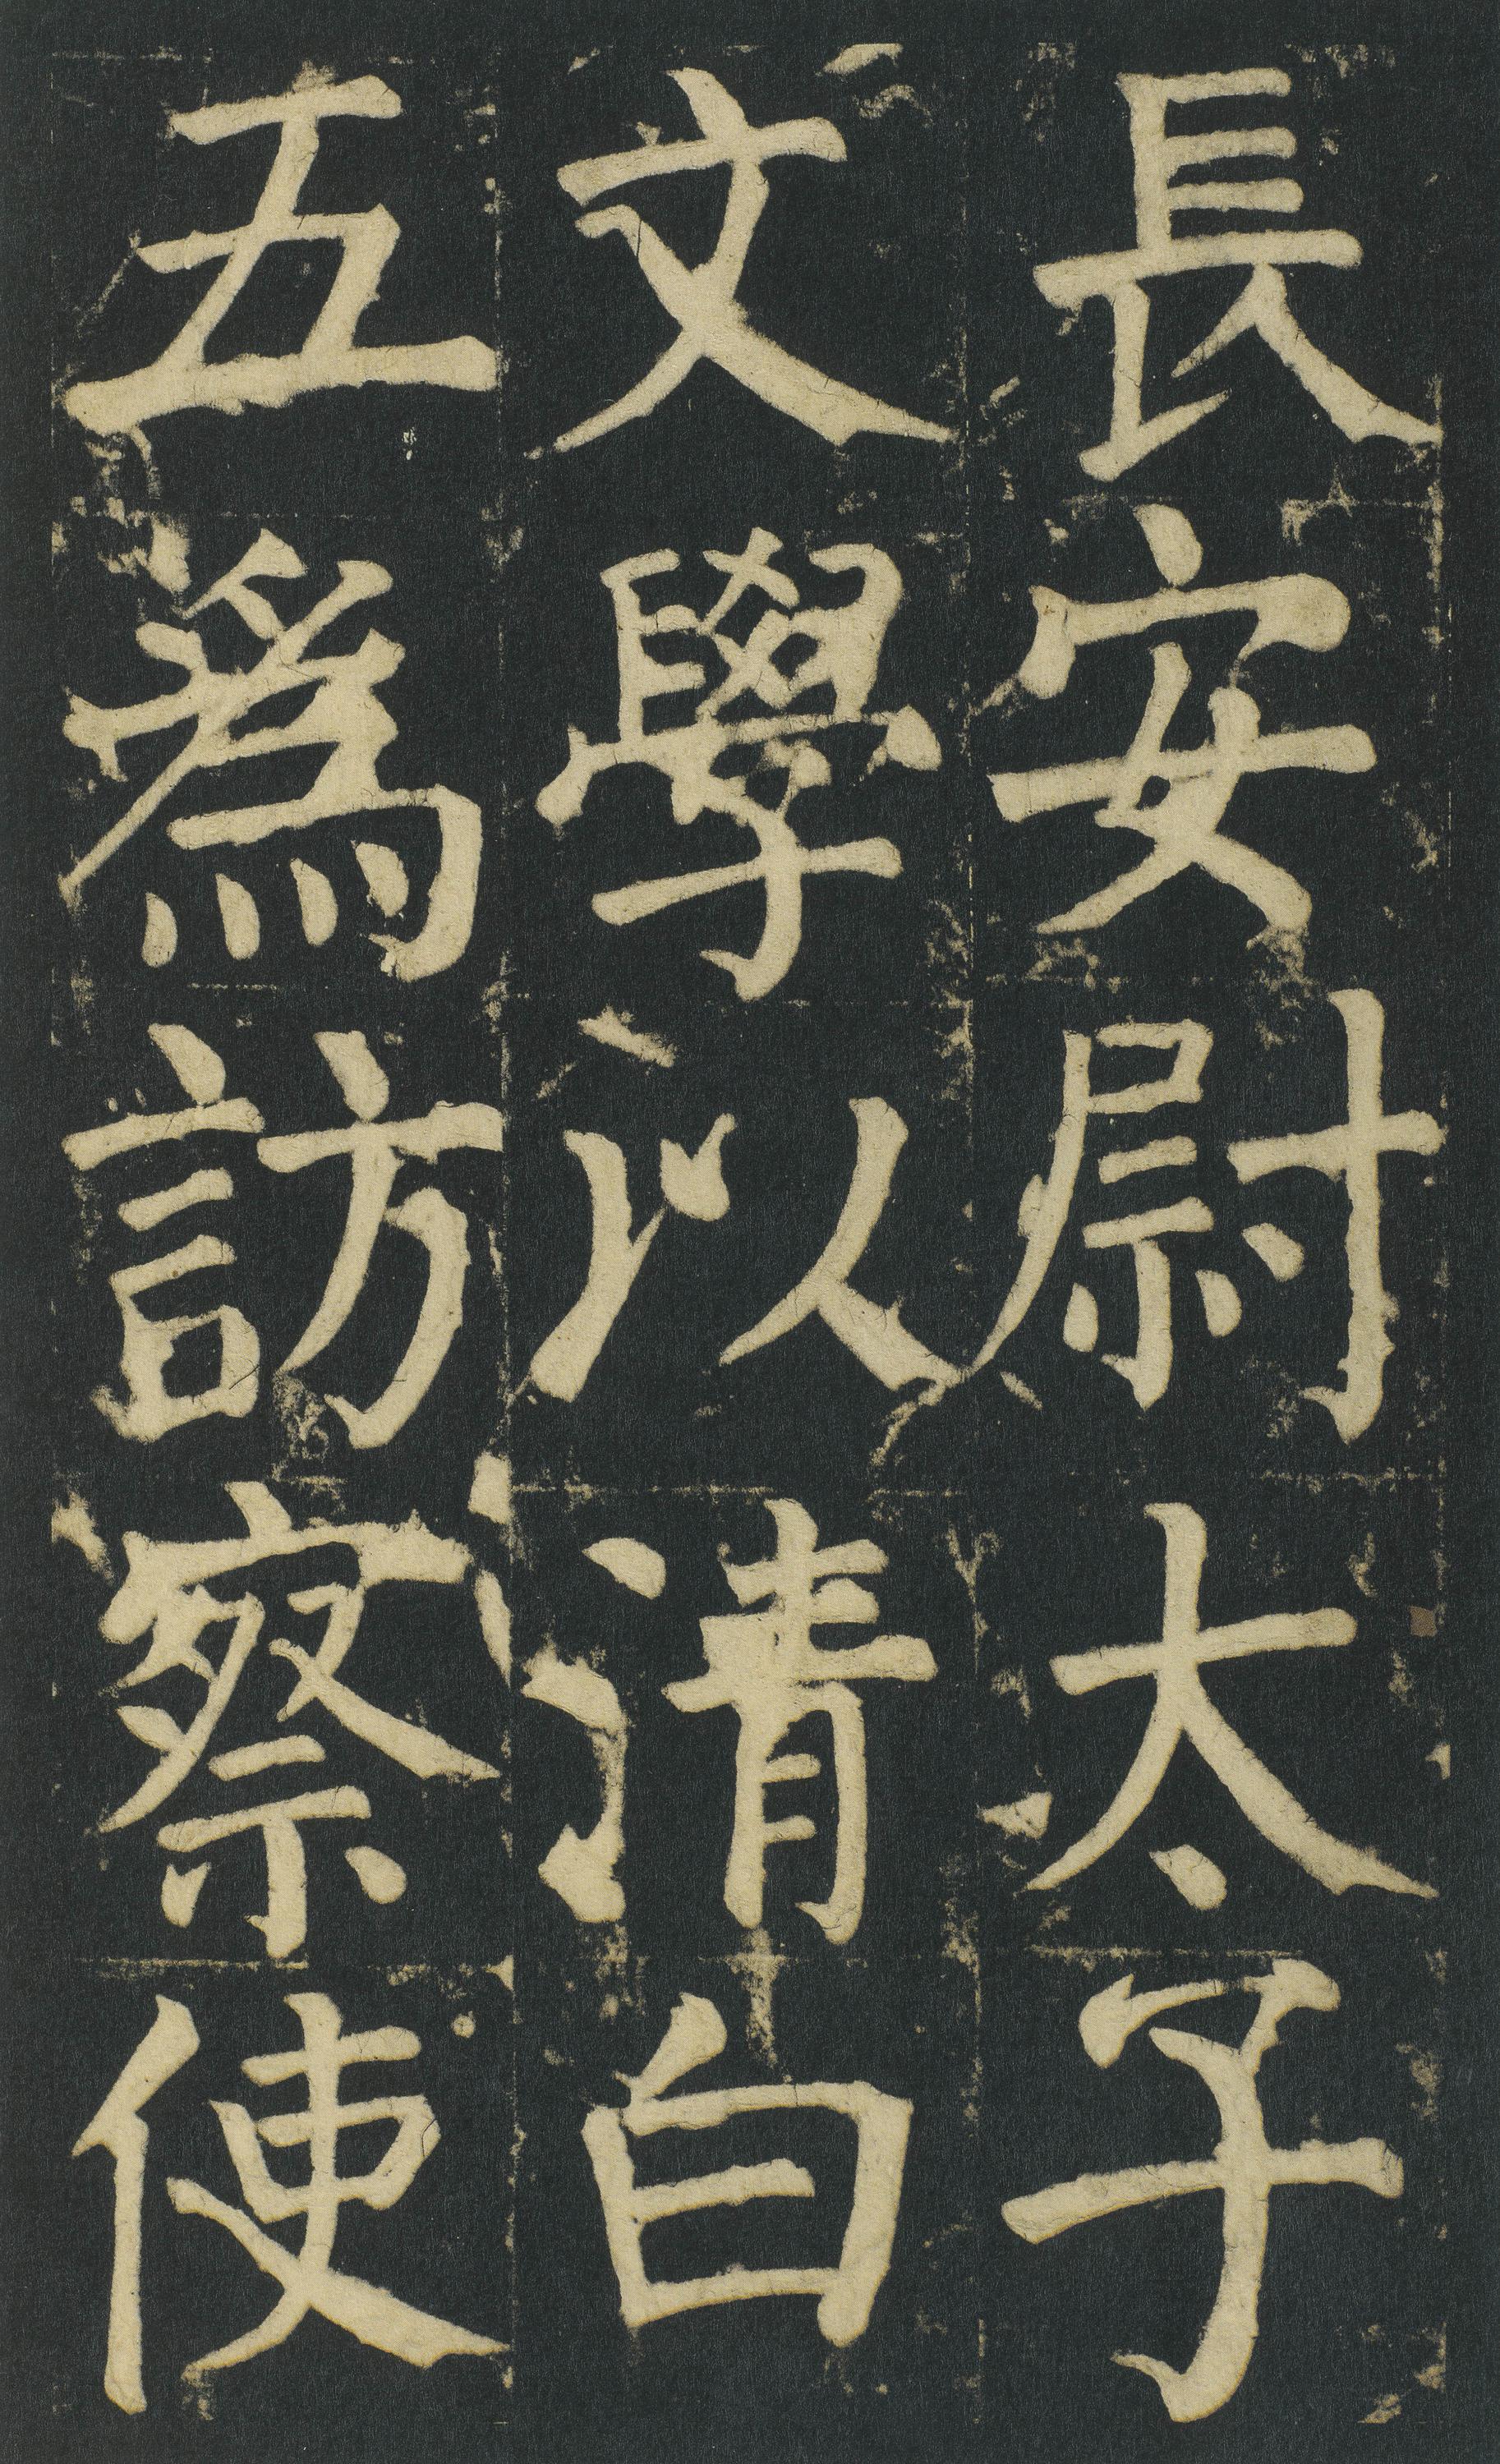 長安尉太子
文學以清白
五為訪察使